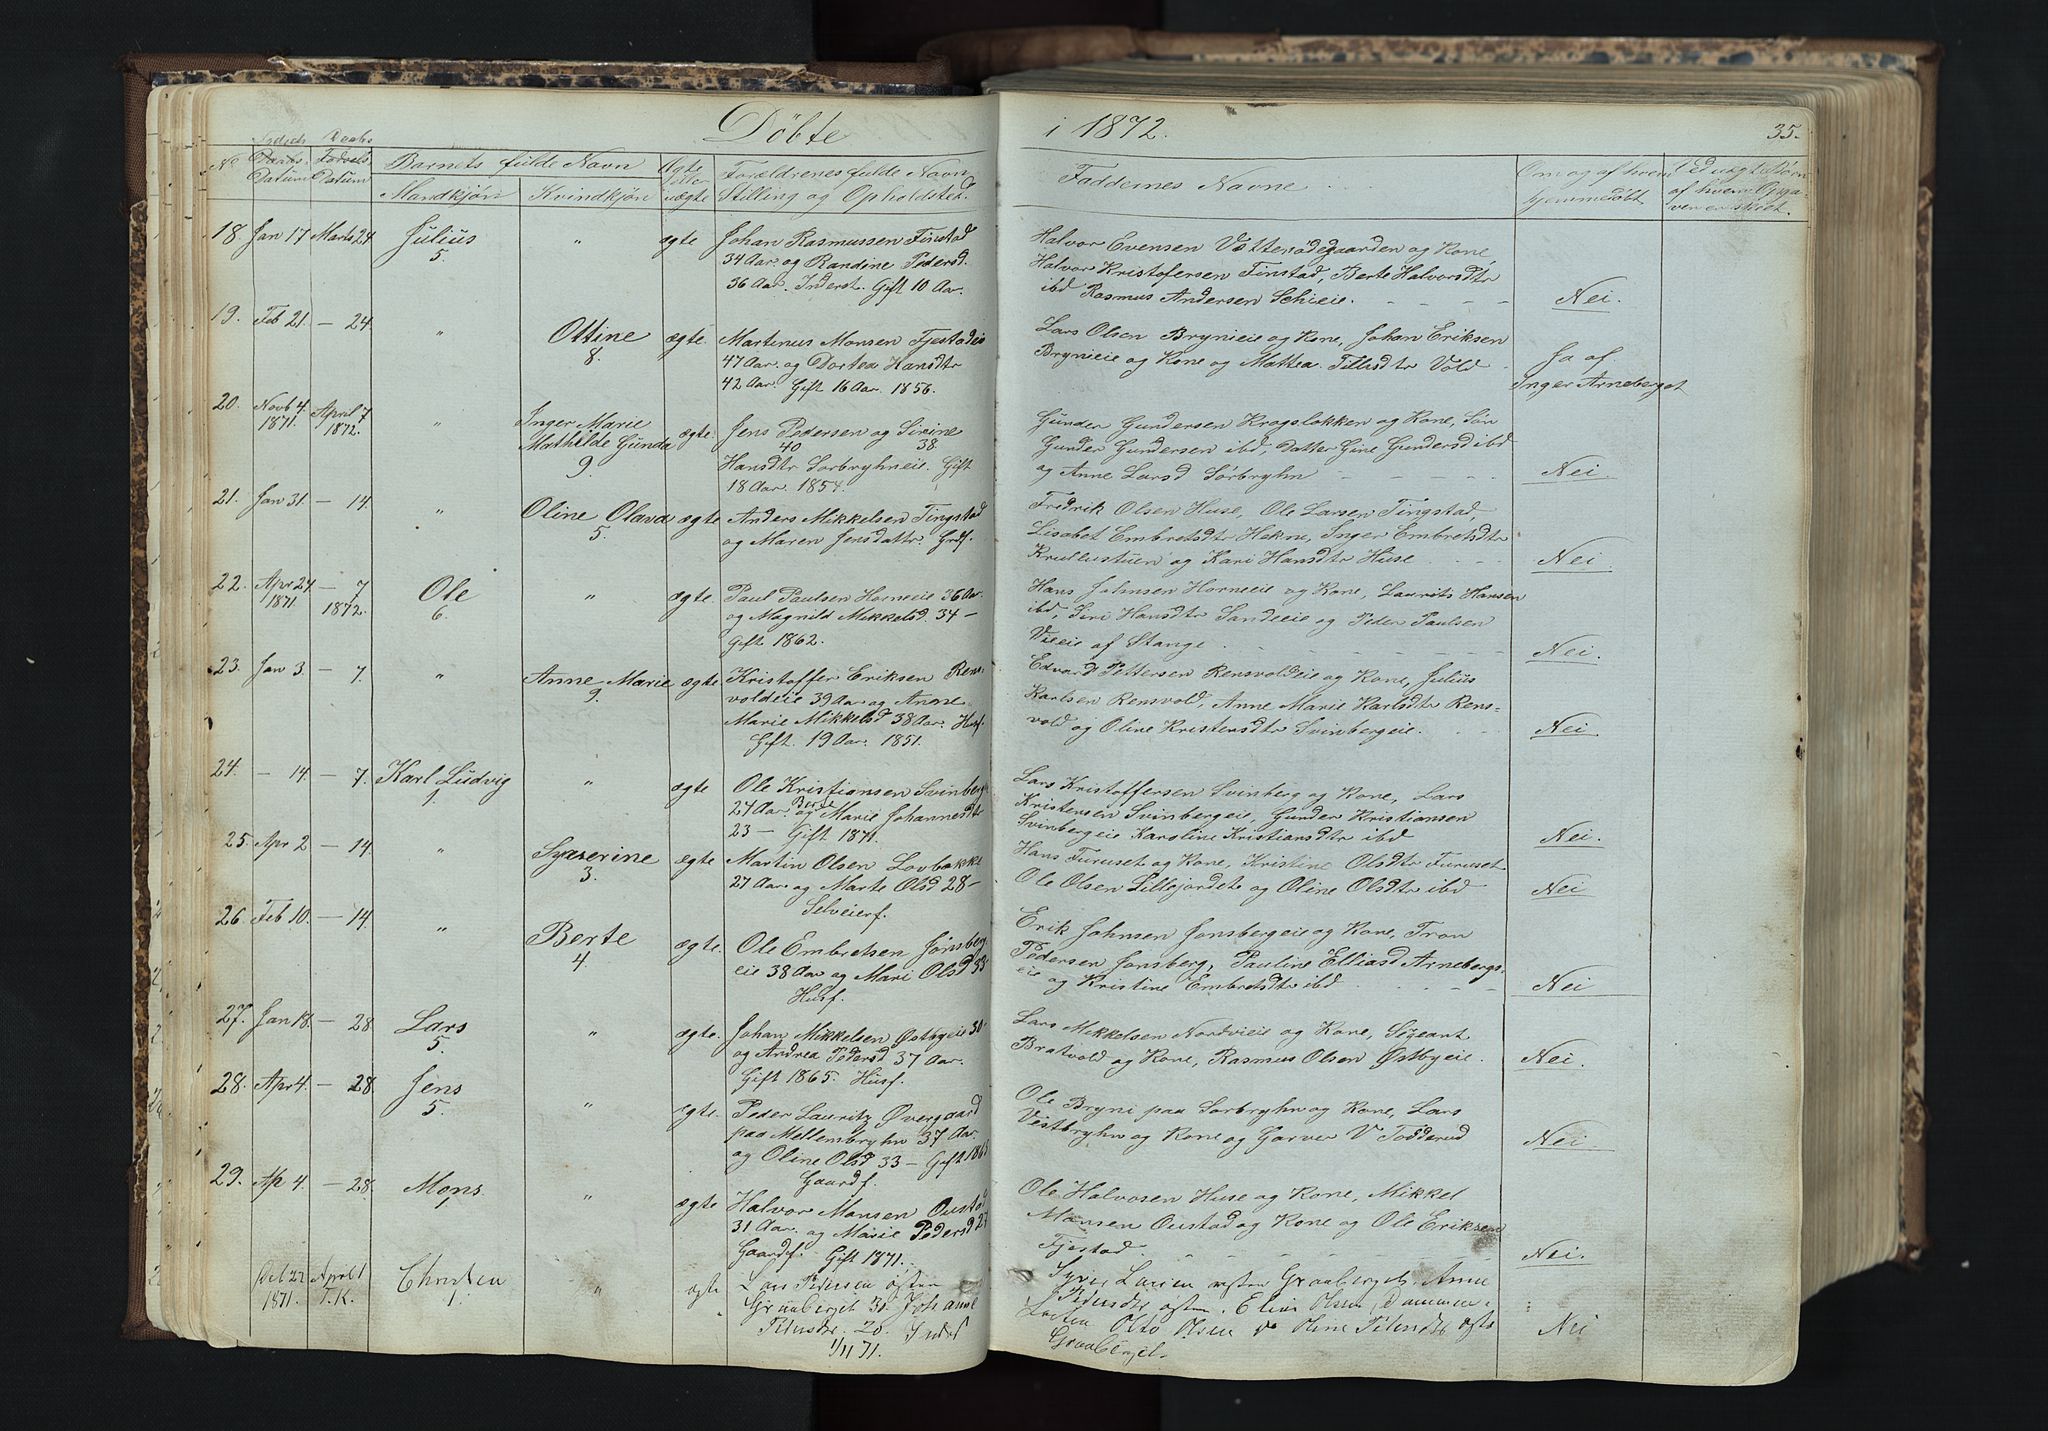 Döbte
i 1872.
35.
No
Fødsels Daabs
Daabs Fødsels
Datum Datum
Barnets fulde Navn
Mandkjön Kvindkjön
Ægte eller uægte
Forældrenes fulde Navn
Stilling og Opholdsted.
Faddernes Navne
Om og af hvem
hjemmedöbt
Ved uægte Börn
af hvem Opga-
ven er skeet.
18. Jan 17 Marts 24 Julius 5. " ægte Johan Rasmussen Finstad
34 Aar og Randine Pedersd.
36 Aar. Inderst. Gift 10 Aar.
Halvor Evensen Vatterödegaarden og Kone,
Halvor Kristofersen Finstad, Berte Halvorsdtr
ibd Rasmus Andersen Schieie.
Nei.
19. Feb 21. — 24. " Ottine 8. ægte Martinus Monsen Fjestadeie
47 Aar. og Dortea Hansdtr
42 Aar. Gift 16 Aar. 1856.
Lars Olsen Brynieie og Kone, Johan Eriksen
Brynieie og Kone og Mattea Tillisdtr Vold
Ja af
Inger Arneberget
20. Novb 4. 1871. April 7 1872. " Inger Marie
Mathilde Gunda 9. ægte. Jens Pedersen og Sirine
40 38.
Hansdtr Sorbryhneie. Gift
18 Aar. 1854.
Gunder Gundersen Kragslokken og Kone, Sön
Gunder Gundersen ibd, Datter Gine Gundersd ibd
og Anne Larsd Sörbryhn
Nei.
21. Jan 31. — 14. " Oline Olava 5. ægte Anders Mikkelsen Tingstad
og Maren Jensdattr. Grdf.
Fredrik Olsen Huse, Ole Larsen Tingstad,
Lisabet Embretsdtr Hekne, Inger Embretsdtr
Krullustuen og Kari Hansdtr Huse
Nei
22. Apr 24. 1871. — 7 1872. Ole 6. " ægte. Paul Paulsen Horneeie 36 Aar.
og Magnild Mikkelsd. 34 —
Gift 1862.
Hans Johnsen Horneeie og Kone, Laurits Hansen
ibd, Siri Hansdtr Sandeeie og Peder Paulsen
Vieeie af Stange
Nei.
23. Jan 3. — 7. " Anne Marie 9. ægte Kristoffer Eriksen Rens-
voldeie 39 Aar og Anne
Marie Mikkelsd 38 Aar. Husf.
Gift. 19 Aar. 1851.
Edvard Pettersen Rensvoldeie og Kone, Julius
Karlsen Rensvold, Anne Marie Karlsdtr Rens-
vold og Oline Kristensdtr Svinbergeie.
Nei.
24. — 14. — 7. Karl Ludvig 1. " ægte Ole Kristiansen Svinberg
27 Aar. og Berte Marie Johannesdtr
23 — Gift 1871.
Lars Kristoffersen Svinberg og Kone, Lars
Kristensen Svinbergeie, Gunder Kristiansen
Svinbergeie Karoline Kristiansdtr ibd
Nei.
25. Apr 2 — 14. " Syverine 3. ægte Martin Olsen Lovbakke
27 Aar og Marte Olsd 28 —
Selveierf.
Hans Furuset og Kone, Kristine Olsdtr Furuset
Ole Olsen Lillejordet og Oline Olsdtr ibd
Nei
26. Feb 10. — 14. " Berte 4. ægte. Ole Embretsen Jönsberg
eie 38 Aar og Mari Olsd 33
Husf.
Erik Johnsen Jonsbergeie og Kone, Tron
Pedersen Jonsberg, Pauline Elliasd Arnebergs-
eie og Kristine Embretsdtr ibd.
Nei
27. Jan 18. — 28. Lars 5. " ægte. Johan Mikkelsen Østbyeie 30
og Andrea Pedersd 37 Aar.
Gift 1865. Husf.
Lars Mikkelsen Nordvieie og Kone, Sigeant
Bratvold og Kone, Rasmus Olsen Østbyeie.
Nei.
28. Apr 4. — 28. Jens 5. " ægte. Peder Lauritz Øvergaard
paa Mellembryhn 37 Aar.
og Oline Olsd 33 — Gift 186
Gaardf.
Ole Bryni paa Sorbryhn og Kone, Lars
Vestbryhn og Kone og Garver V Todderud
Nei.
29. Ap 4. — 28. Mons 1. " ægte Halvor Monsen Oustad
31 Aar. og Marie Pedersd 27
Gaardf. Gift 1871.
Ole Halvosen Huse og Kone, Mikkel
Monsen Oustad og Kone og Ole Eriksen
Fjestad.
Nei.
Det 27 1871. April 1 T.K. Christen 1. " ægte Lars Pedersen østen
Graaberget 31. Johanne
20. Inderst
1/11 71.
Syver Larsen østen Graaberget, Anne
østen. Elias Olsen,
Otto Olsen Oline
Graaberget.
Nei